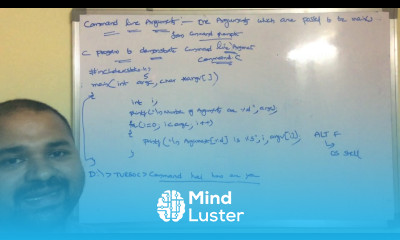 Command Line Arguments — are Arguments which are passed to main()
from command prompt
C program to demonstrate command line Argument
Command.C
#include<stdio.h>
main(int argc, char *argv[])
5
{
int i;
printf("\n Number of Arguments are =%d", argc);
for(i=0; i<argc; i++)
{
printf("\n Argument[%d] is =%s", i, argv[i]);
}
}
ALT F
OS shell
D:\>TURBOC>Command
Mind
Luster